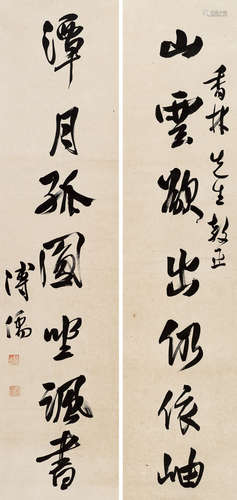 香林先生教正
山雲欲出仍依岫
潭月孤圓坐諷書
溥儒